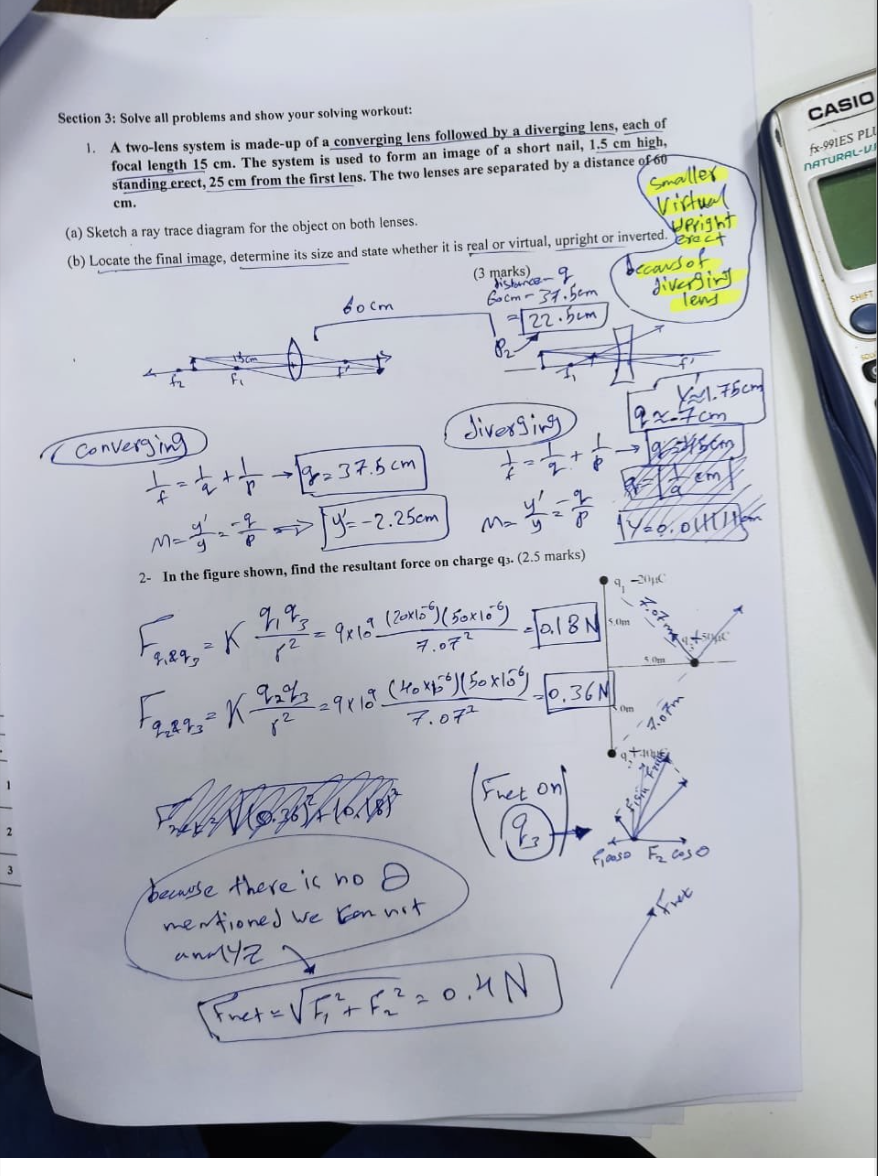 Section 3: Solve all problems and show your solving workout:
1. A two-lens system is made-up of a converging lens followed by a diverging lens, each of
focal length 15 cm. The system is used to form an image of a short nail, 1.5 cm high,
standing erect, 25 cm from the first lens. The two lenses are separated by a distance of 60
cm.
(a) Sketch a ray trace diagram for the object on both lenses.
(b) Locate the final image, determine its size and state whether it is real or virtual, upright or inverted.
(3 marks)
smaller
Virtual
upright
erect
becaus of
diverging
lens
distance - q
60cm - 37.5cm
= 22.5cm
P₂
60cm
15cm
f₂
f₁
f'
f₁
f'
Y≈1.75cm
q≈-7cm
Converging
1/f = 1/q + 1/p → q = 37.5 cm
M = y'/y = -q/p ⇒ y' = -2.25cm
diverging
1/f = 1/q + 1/p →
M = y'/y = -q/p
2- In the figure shown, find the resultant force on charge q₃. (2.5 marks)
q₁ -20μC
7.07m
5.0m
q₃ +50μC
5.0m
0m
7.07m
q₂
F q₁&q₃ = K q₁q₃/r² = 9×10⁹ (20×10⁻⁶)(50×10⁻⁶)/7.07² = 0.18 N
F q₂&q₃ = K q₂q₃/r² = 9×10⁹ (40×10⁻⁶)(50×10⁻⁶)/7.07² = 0.36N
(Fnet on
q₃)
F₁cosθ F₂ cosθ
Fnet
because there is no θ
mentioned we can not
analyz
Fnet = √F₁² + F₂² = 0.4 N
CASIO
fx-991ES PLU
NATURAL-V
SHIFT
1
2
3